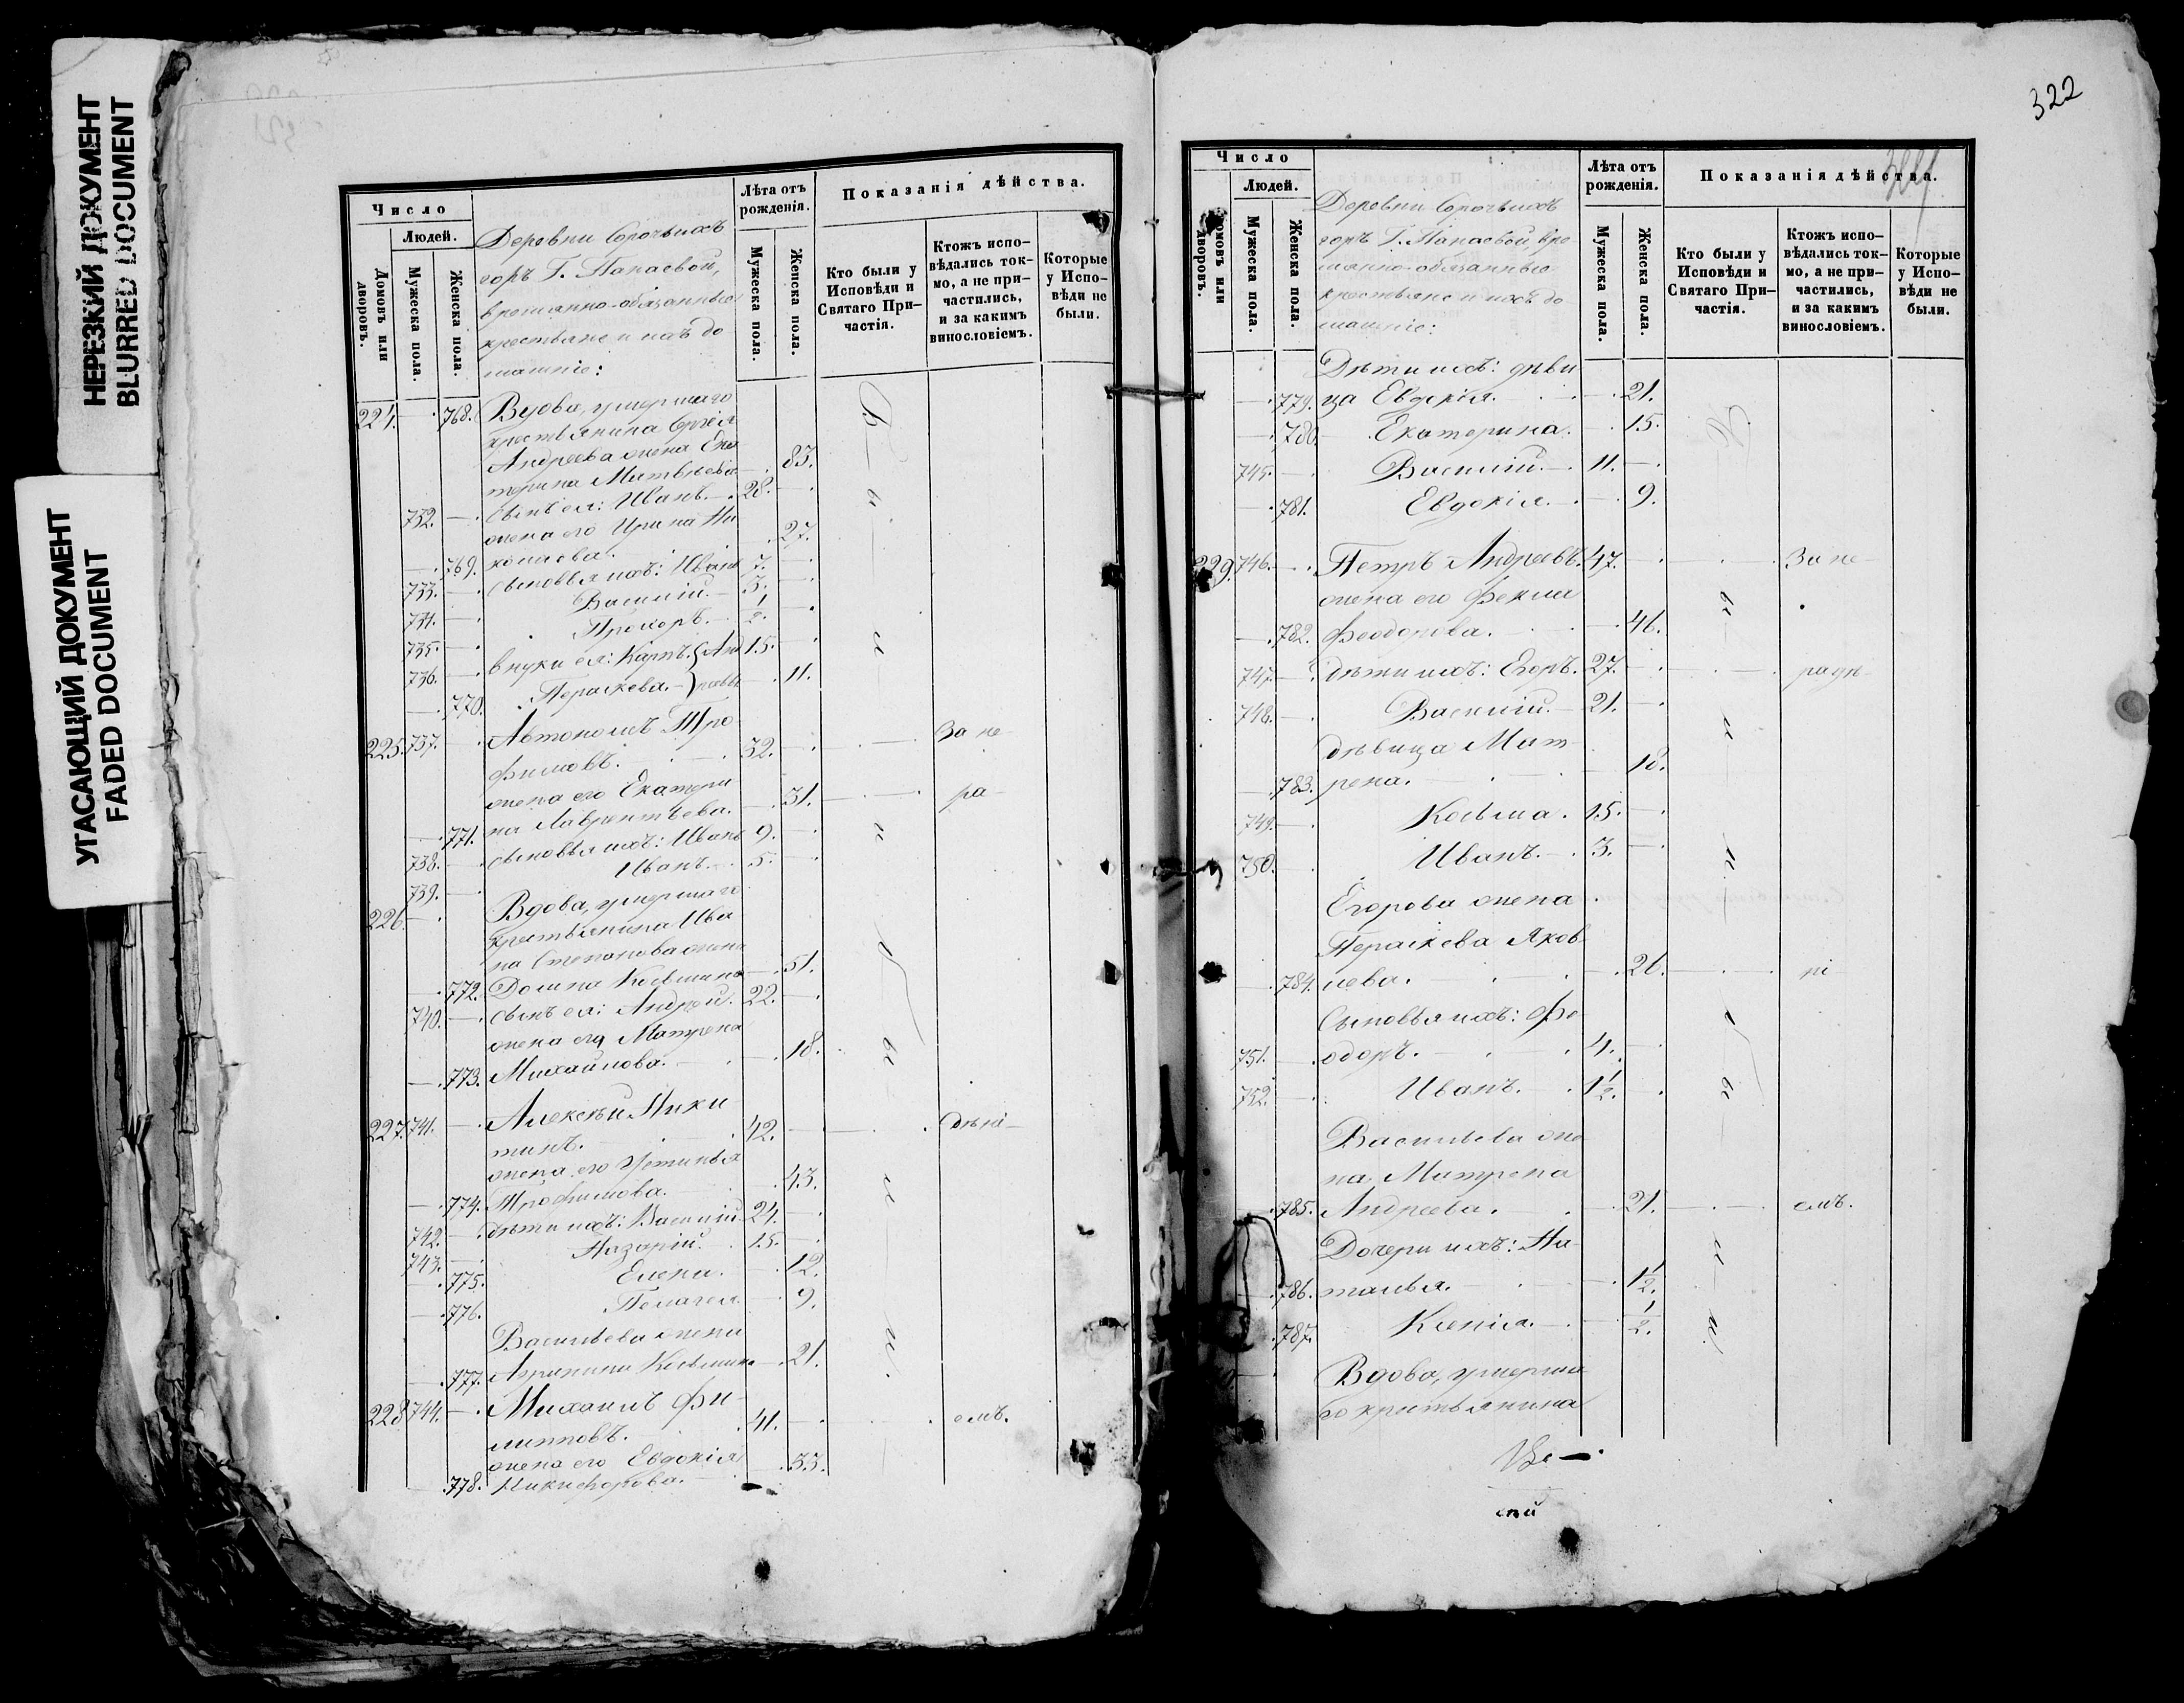 НЕРЕЗКИЙ ДОКУМЕНТ
BLURRED DOCUMENT
УГАСАЮЩИЙ ДОКУМЕНТ
FADED DOCUMENT
Число
Людей.
Домовъ или дворовъ.
Мужеска пола.
Женска пола.
Деревни Сорочьихъ
горъ Г. Панаевой,
временно-обязанные
крестьяне и ихъ до
машніе:
Лѣта отъ рожденія.
Мужеска пола.
Женска пола.
Показанія дѣйства.
Кто были у Исповѣди и Святаго Причастія.
Ктожъ исповѣдались токмо, а не причастились, и за какимъ винословіемъ.
Которые у Исповѣди не были.
224. 768. Вдова, умершаго
крестьянина Сергѣя
Андреева жена Ека
терина Матвѣева 83.
732. Сынъ ея: Иванъ. 28.
жена его Ирина Ни
769. колаева. 27.
733. сыновья ихъ: Иванъ 7.
734. Василій. 3.
735. Прохоръ. 1/2.
736. внуки ея: Карпъ. Анд 15.
770. Параскева. реевы 11.
225. 737. Автономъ Тро
фимовъ. 32. За не
жена его Екатери
771. на Лаврентьева. 31. ра
738. сыновья ихъ: Иванъ 9.
739. Иванъ. 5.
226. Вдова, умершаго
крестьянина Ива
на Степанова жена
772. Домна Косьмина 51.
740. сынъ ея: Андрей. 22.
жена его Матрена
773. Михайлова. 18.
227. 741. Алексѣй Ники
тинъ. 42. дѣні
жена его Устинья
774. Трофимова. 43.
742. дѣти ихъ: Василій 24.
743. Назарій. 15.
775. Елена. 12.
776. Пелагея 9.
Васильева жена
777. Агрипина Косьмина 21.
228. 744. Михаилъ Фи
липповъ. 41. емъ.
жена его Евдокія
778. Никифорова. 33.
322
Число
Людей.
Домовъ или дворовъ.
Мужеска пола.
Женска пола.
Деревни Сорочьихъ
горъ Г. Панаевой, вре
менно-обязанные
крестьяне и ихъ до
машніе:
Лѣта отъ рожденія.
Мужеска пола.
Женска пола.
Показанія дѣйства.
Кто были у Исповѣди и Святаго Причастія.
Ктожъ исповѣдались токмо, а не причастились, и за какимъ винословіемъ.
Которые у Исповѣди не были.
Дѣти ихъ: дѣви
779. ца Евдокія. 21.
780. Екатерина. 15.
745. Василій. 11.
781. Евдокія. 9.
229. 746. Петръ Андреевъ. 47. За не
жена его Фекла
782. Феодорова. 46.
747. дѣти ихъ: Егоръ. 27. радѣ
748. Василій. 21.
дѣвица Мат
783. рена. 18.
749. Косьма. 15.
750. Иванъ. 3.
Егорова жена
Параскева Яков
784. лева. 26. ні
Сыновья ихъ: Фе
751. одоръ. 4.
752. Иванъ. 1 1/2.
Васильева же
на Матрена
785. Андреева. 21. емъ.
Дочери ихъ: На
786. талья. 1 1/2.
787. Ксенія. 1/2.
Вдова, умерша
го крестьянина